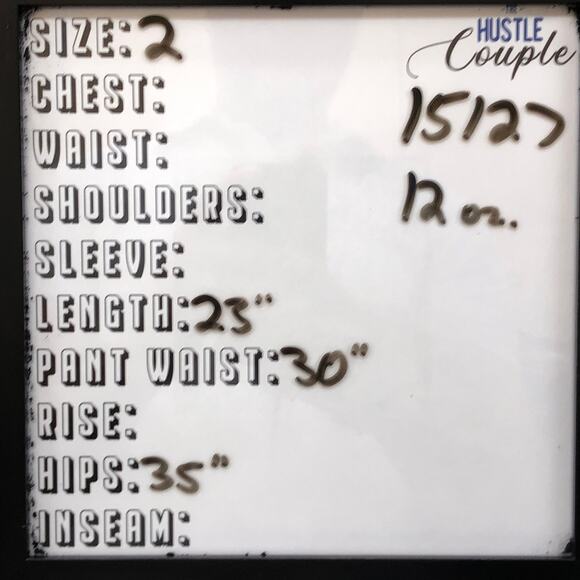 SIZE: 2
THE
HUSTLE
Couple
CHEST:
15127
WAIST:
SHOULDERS:
12 oz.
SLEEVE:
LENGTH: 23"
PANT WAIST: 30"
RISE:
HIPS: 35"
INSEAM: